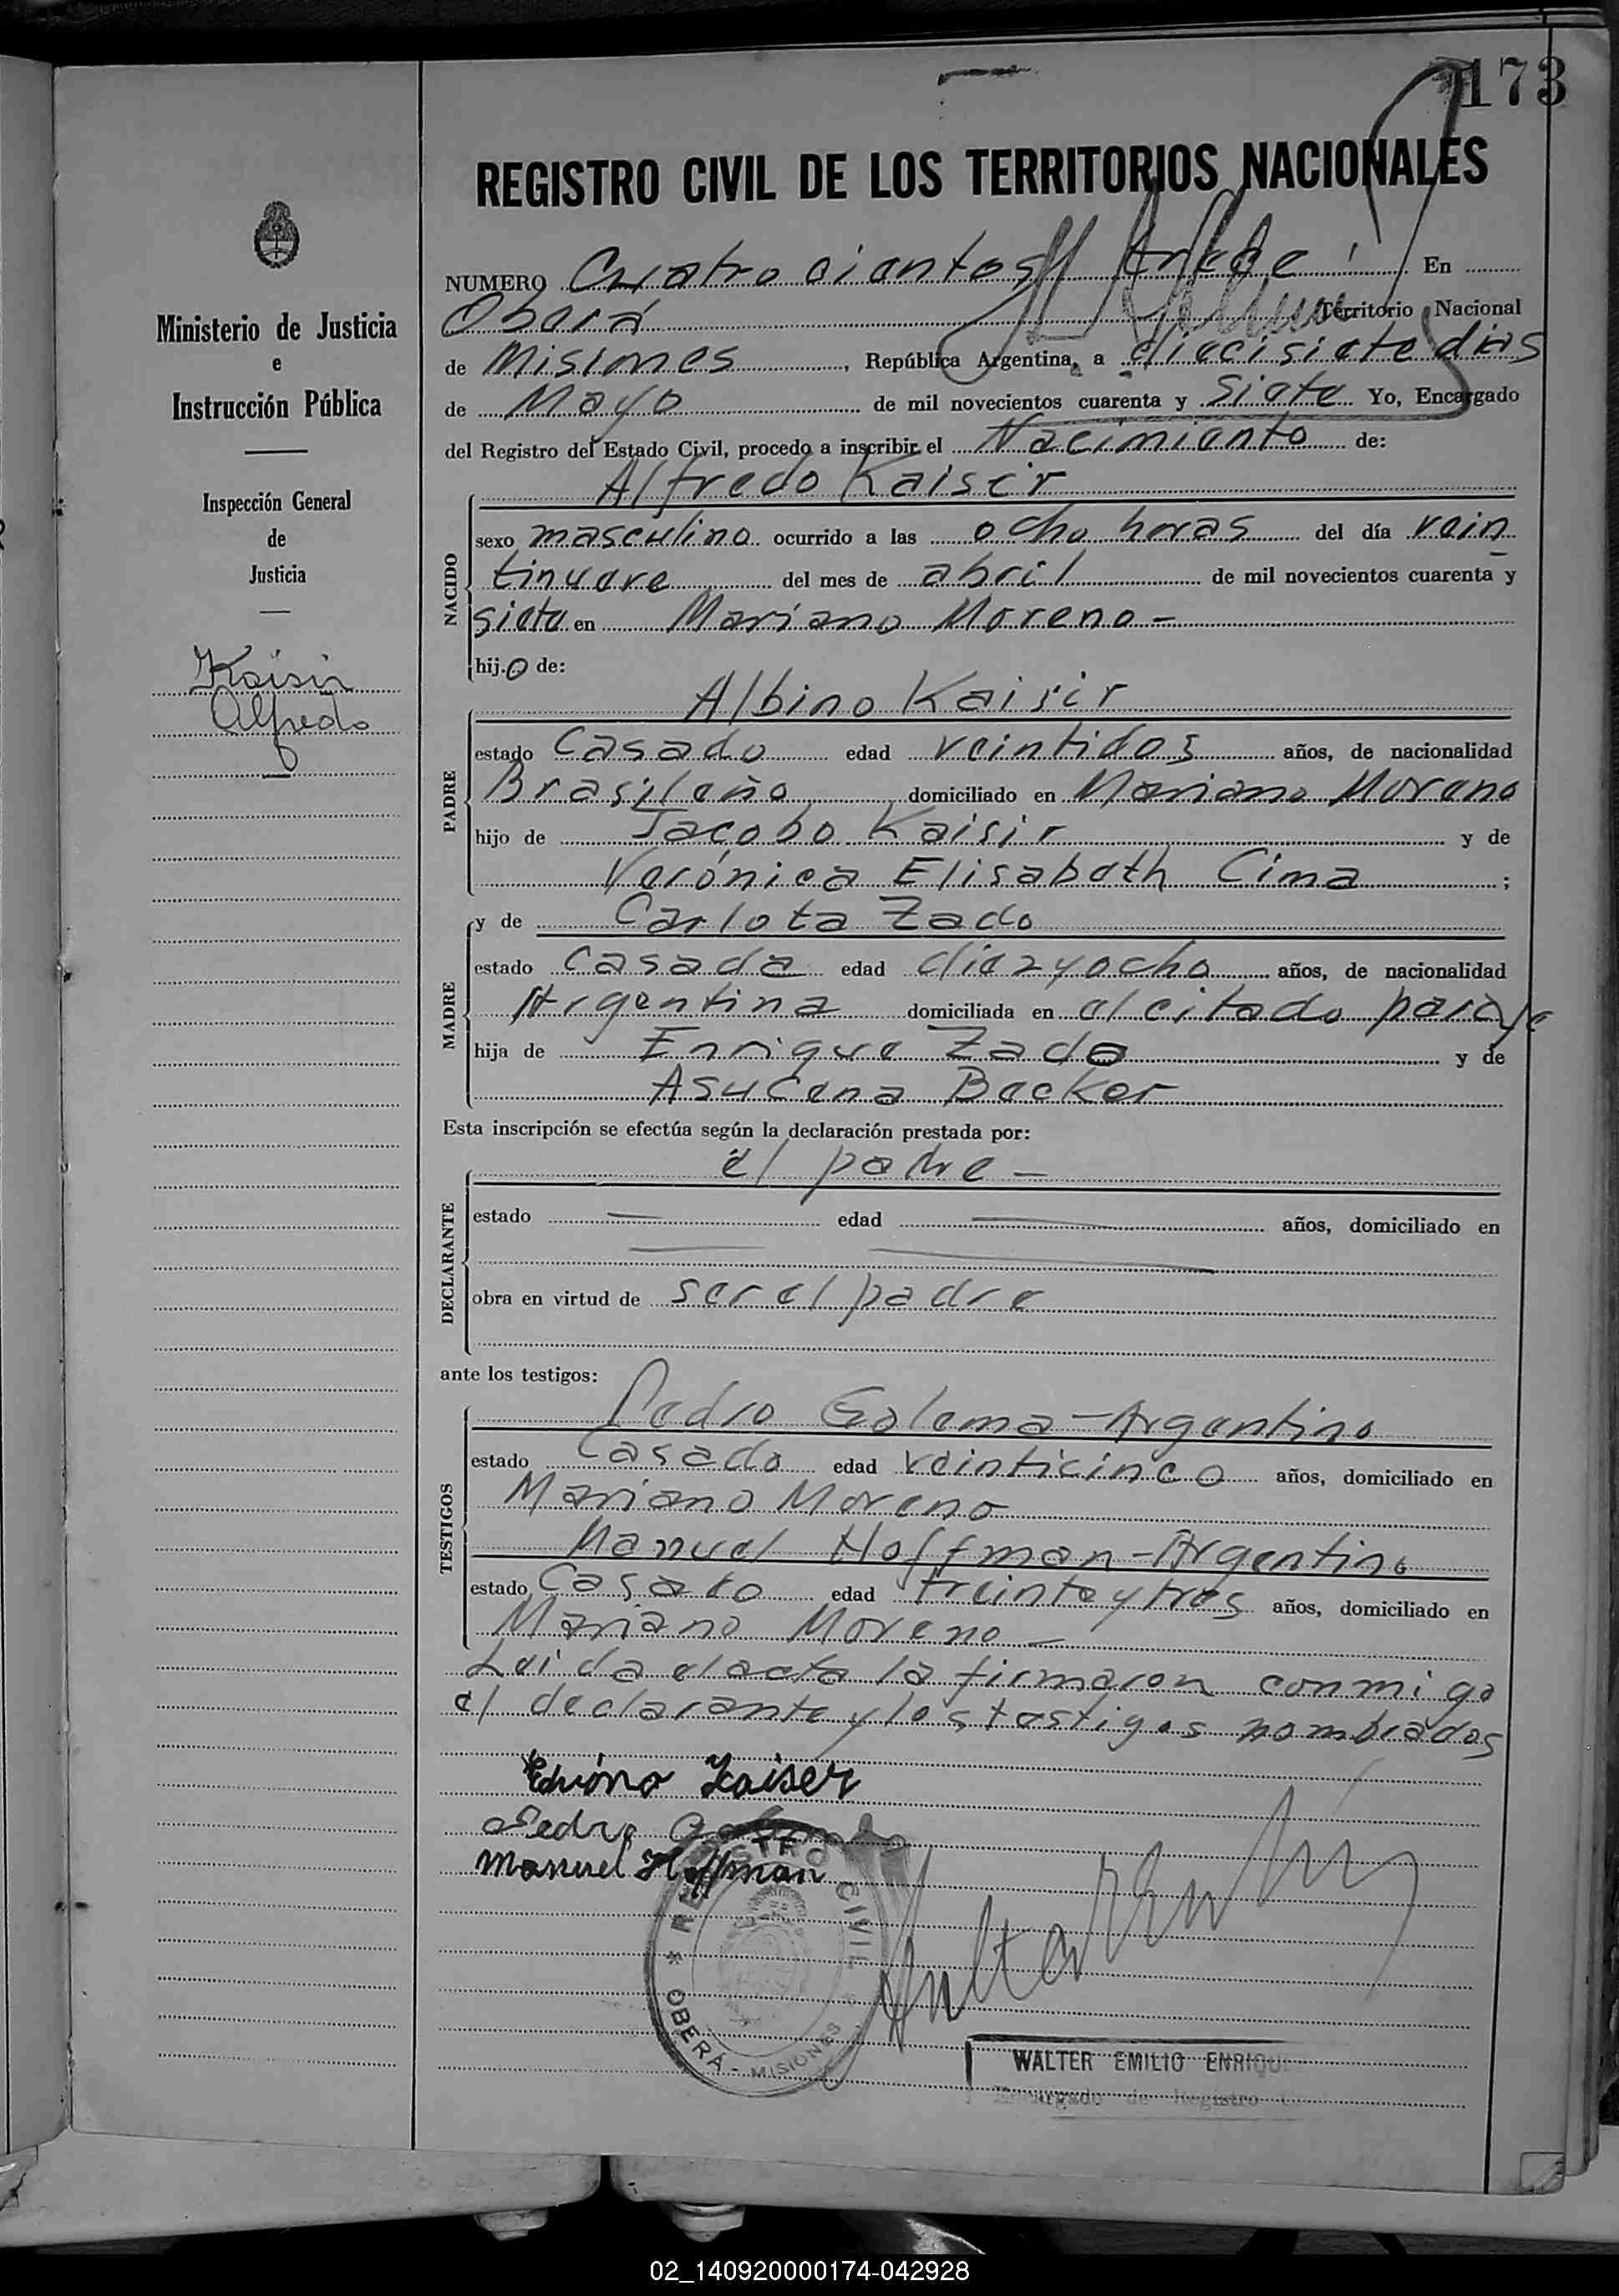 173
REGISTRO CIVIL DE LOS TERRITORIOS NACIONALES
NUMERO Cuatrocientos En
Oberá Territorio Nacional
de Misiones, República Argentina, a diecisiete dias
de Mayo de mil novecientos cuarenta y siete Yo, Encargado
del Registro del Estado Civil, procedo a inscribir el Nacimiento de:
Ministerio de Justicia
e
Instrucción Pública
Inspección General
de
Justicia
Kaisir
Alfredo
NACIDO
Alfredo Kaisir
sexo masculino ocurrido a las ocho horas del día vein
tinueve del mes de abril de mil novecientos cuarenta y
siete en Mariano Moreno -
hijo de:
PADRE
Albino Kaisir
estado Casado edad veintidos años, de nacionalidad
Brasileño domiciliado en Mariano Moreno
hijo de Jacobo Kaisir y de
Verónica Elisabeth Cima ;
MADRE
y de Carlota Zado
estado Casada edad diezyocho años, de nacionalidad
Argentina domiciliada en el citado paraje
hija de Enrique Zado y de
Asucena Becker
Esta inscripción se efectúa según la declaración prestada por:
DECLARANTE
el padre -
estado — edad — años, domiciliado en
obra en virtud de ser el padre
ante los testigos:
TESTIGOS
Pedro Golema - Argentino
estado Casado edad veinticinco años, domiciliado en
Mariano Moreno
Manuel Hoffman - Argentino
estado Casado edad treinta y tres años, domiciliado en
Mariano Moreno -
Leida el acta la firmaron conmigo
el declarante y los testigos nombrados
Kaiser
Pedro
Manuel Hoffman
REGISTRO CIVIL
* OBERÁ - MISIONES
WALTER EMILIO ENRIQU
Encargado de Registro
02_140920000174-042928